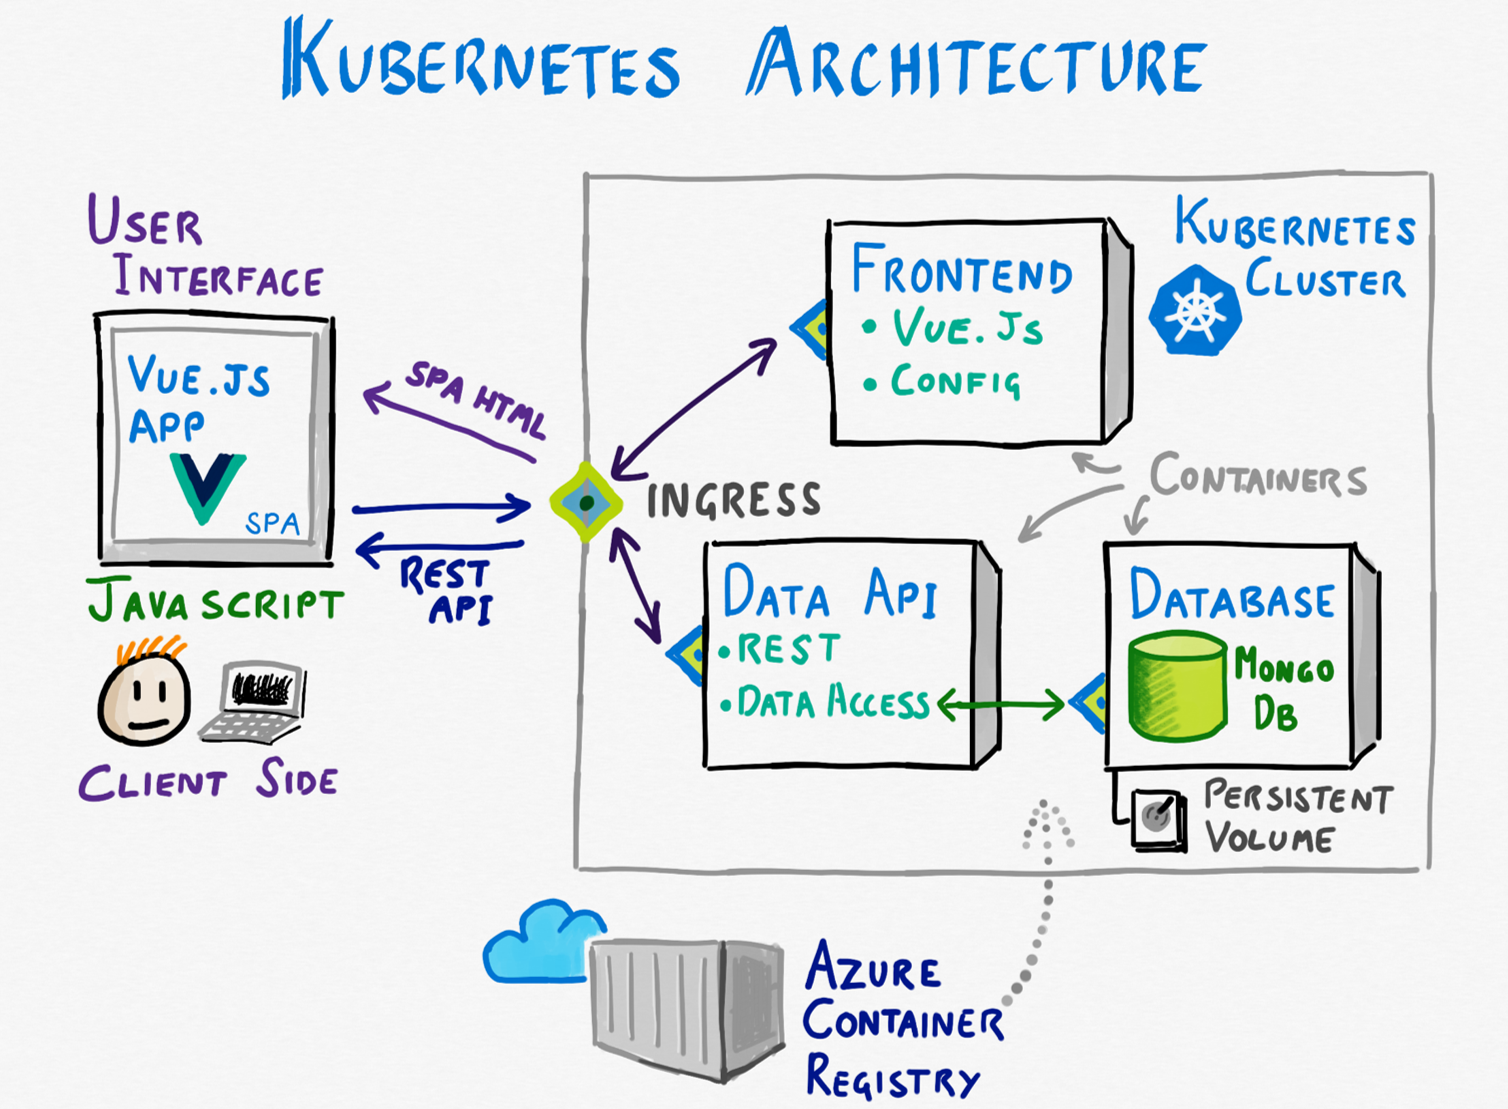 KUBERNETES ARCHITECTURE
USER
INTERFACE
VUE.JS
APP
SPA
JAVASCRIPT
CLIENT SIDE
SPA HTML
REST
API
INGRESS
KUBERNETES
CLUSTER
FRONTEND
• VUE.JS
• CONFIG
CONTAINERS
DATA API
• REST
• DATA ACCESS
DATABASE
MONGO
DB
PERSISTENT
VOLUME
AZURE
CONTAINER
REGISTRY